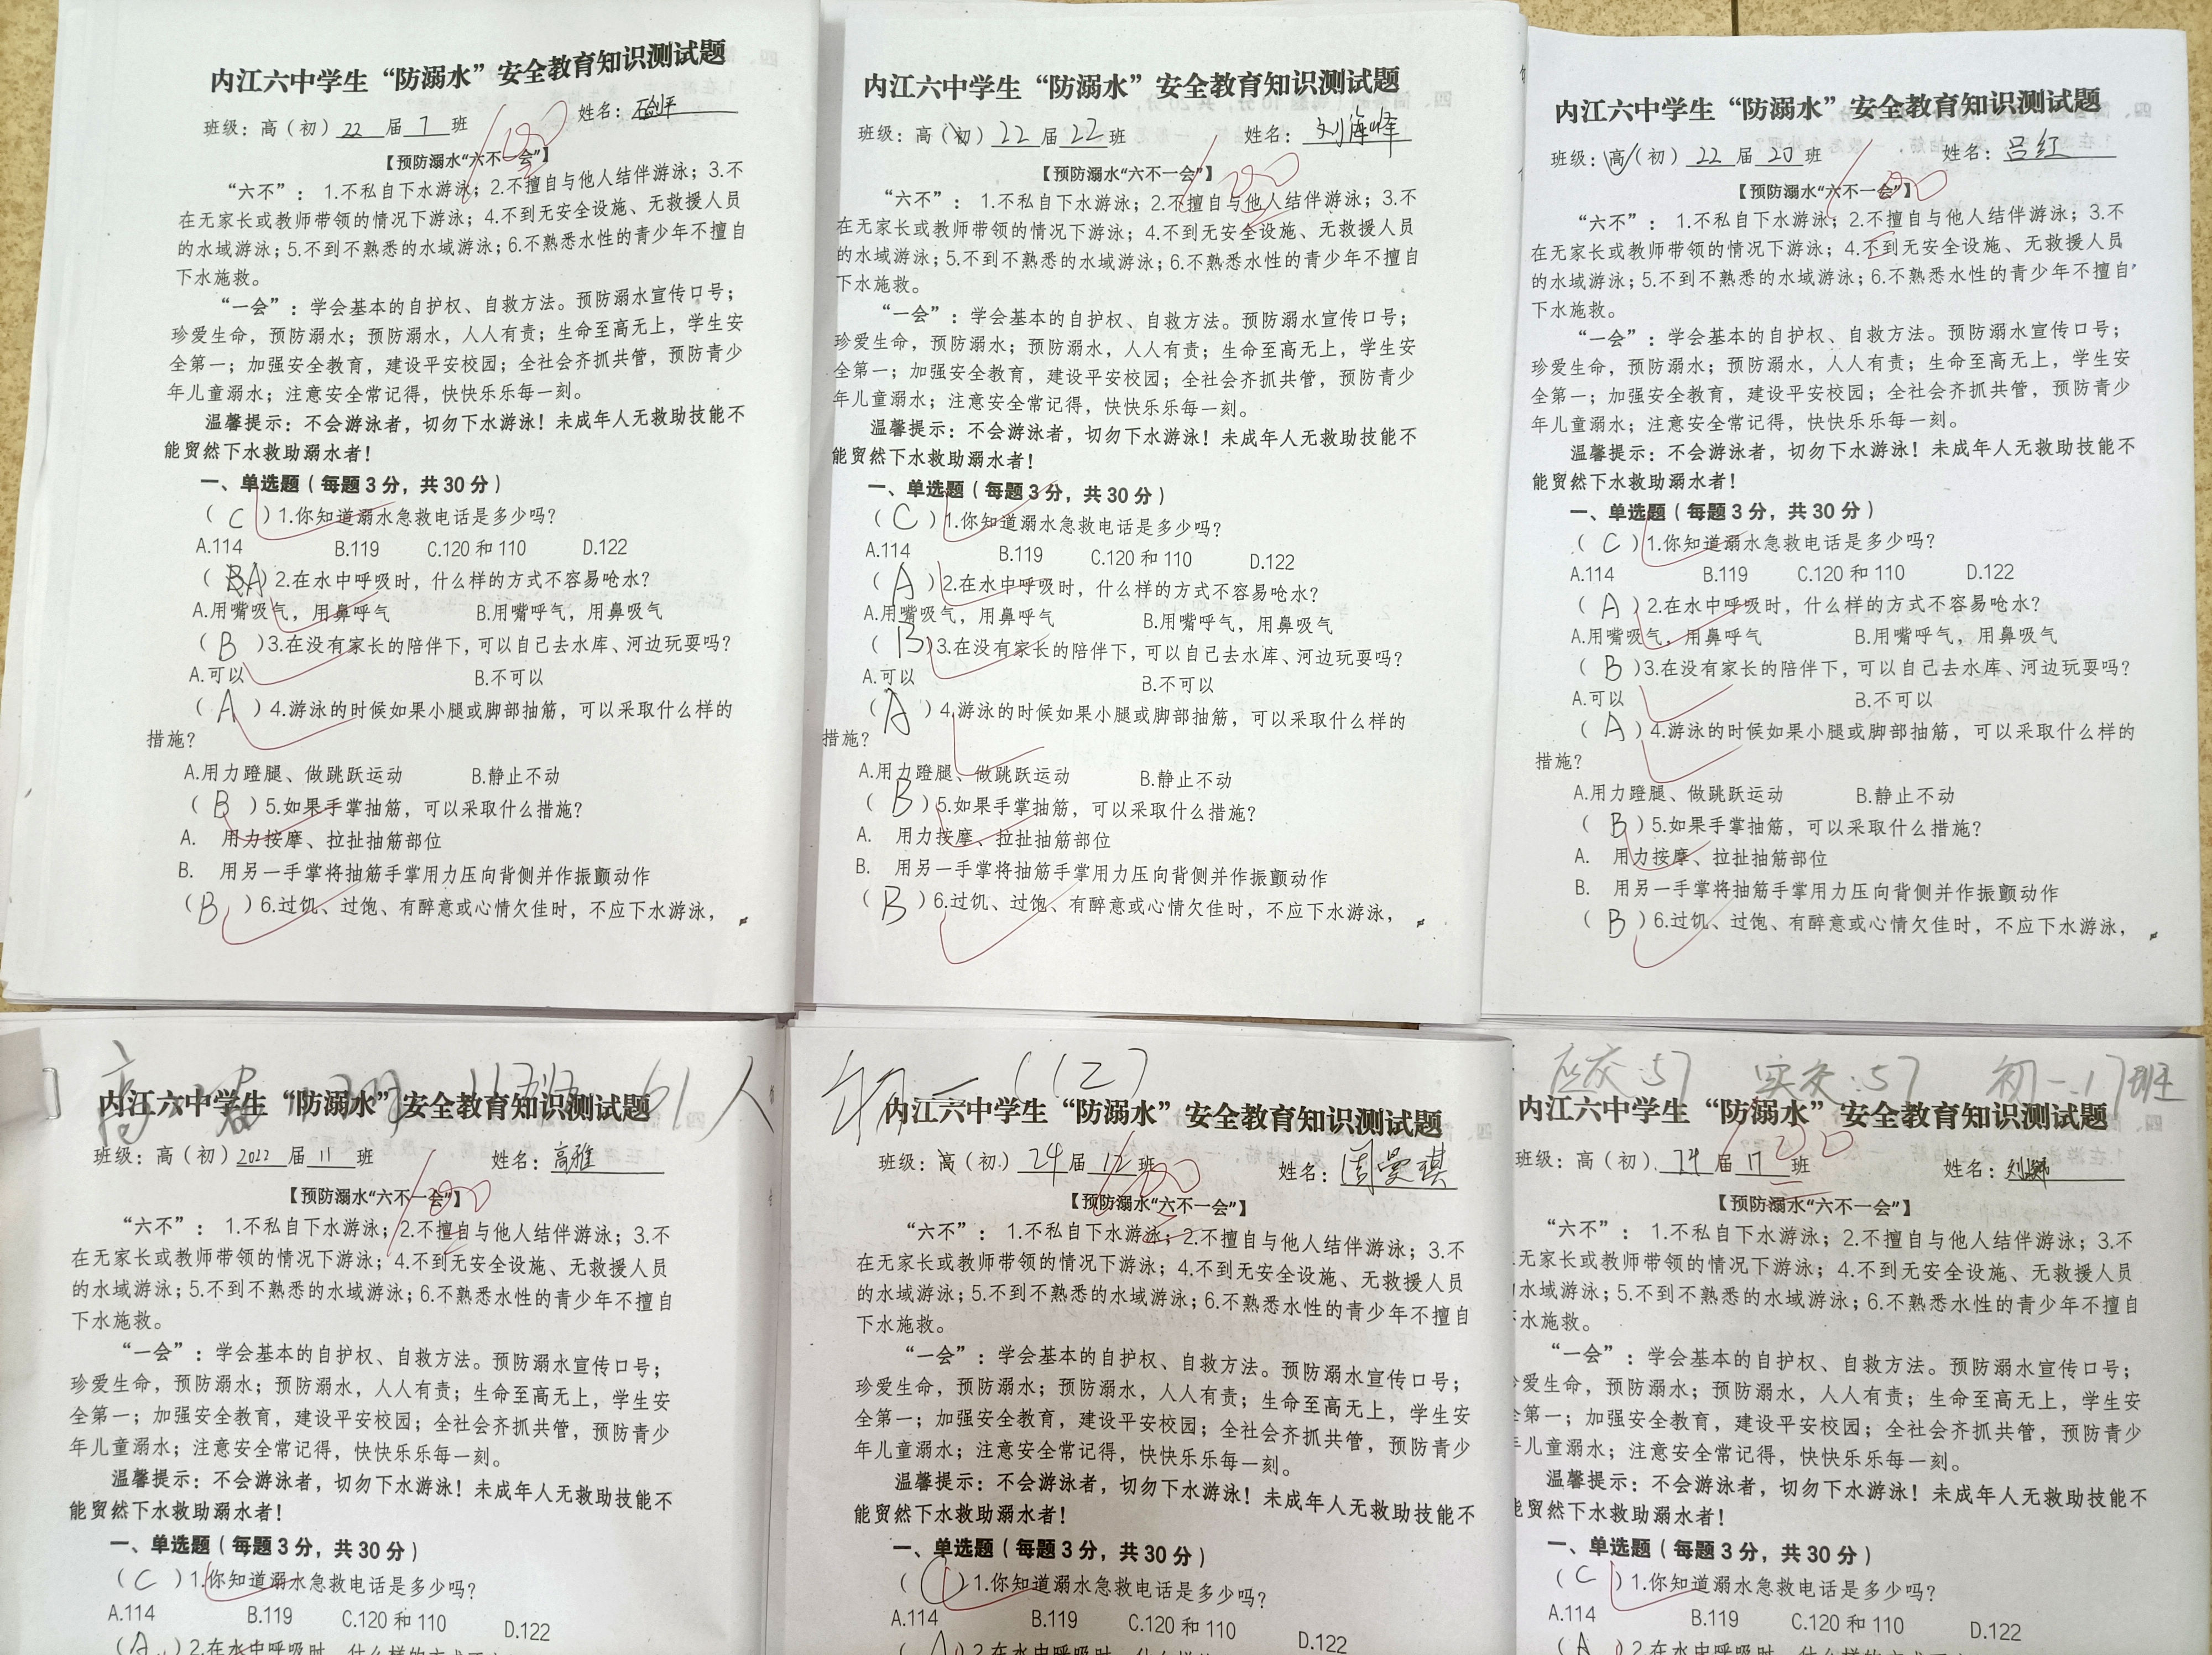 内江六中学生“防溺水”安全教育知识测试题
班级：高（初）22届7班 姓名：
100
【预防溺水“六不一会”】
“六不”：1.不私自下水游泳；2.不擅自与他人结伴游泳；3.不
在无家长或教师带领的情况下游泳；4.不到无安全设施、无救援人员
的水域游泳；5.不到不熟悉的水域游泳；6.不熟悉水性的青少年不擅自
下水施救。
“一会”：学会基本的自护权、自救方法。预防溺水宣传口号；
珍爱生命，预防溺水；预防溺水，人人有责；生命至高无上，学生安
全第一；加强安全教育，建设平安校园；全社会齐抓共管，预防青少
年儿童溺水；注意安全常记得，快快乐乐每一刻。
温馨提示：不会游泳者，切勿下水游泳！未成年人无救助技能不
能贸然下水救助溺水者！
一、单选题（每题3分，共30分）
（C）1.你知道溺水急救电话是多少吗？
A.114 B.119 C.120和110 D.122
（A）2.在水中呼吸时，什么样的方式不容易呛水？
A.用嘴吸气，用鼻呼气 B.用嘴呼气，用鼻吸气
（B）3.在没有家长的陪伴下，可以自己去水库、河边玩耍吗？
A.可以 B.不可以
（A）4.游泳的时候如果小腿或脚部抽筋，可以采取什么样的
措施？
A.用力蹬腿、做跳跃运动 B.静止不动
（B）5.如果手掌抽筋，可以采取什么措施？
A. 用力按摩、拉扯抽筋部位
B. 用另一手掌将抽筋手掌用力压向背侧并作振颤动作
（B）6.过饥、过饱、有醉意或心情欠佳时，不应下水游泳，
内江六中学生“防溺水”安全教育知识测试题
班级：高（初）22届22班 姓名：刘海峰
100
【预防溺水“六不一会”】
“六不”：1.不私自下水游泳；2.不擅自与他人结伴游泳；3.不
在无家长或教师带领的情况下游泳；4.不到无安全设施、无救援人员
的水域游泳；5.不到不熟悉的水域游泳；6.不熟悉水性的青少年不擅自
下水施救。
“一会”：学会基本的自护权、自救方法。预防溺水宣传口号；
珍爱生命，预防溺水；预防溺水，人人有责；生命至高无上，学生安
全第一；加强安全教育，建设平安校园；全社会齐抓共管，预防青少
年儿童溺水；注意安全常记得，快快乐乐每一刻。
温馨提示：不会游泳者，切勿下水游泳！未成年人无救助技能不
能贸然下水救助溺水者！
一、单选题（每题3分，共30分）
（C）1.你知道溺水急救电话是多少吗？
A.114 B.119 C.120和110 D.122
（A）2.在水中呼吸时，什么样的方式不容易呛水？
A.用嘴吸气，用鼻呼气 B.用嘴呼气，用鼻吸气
（B）3.在没有家长的陪伴下，可以自己去水库、河边玩耍吗？
A.可以 B.不可以
（A）4.游泳的时候如果小腿或脚部抽筋，可以采取什么样的
措施？
A.用力蹬腿、做跳跃运动 B.静止不动
（B）5.如果手掌抽筋，可以采取什么措施？
A. 用力按摩、拉扯抽筋部位
B. 用另一手掌将抽筋手掌用力压向背侧并作振颤动作
（B）6.过饥、过饱、有醉意或心情欠佳时，不应下水游泳，
内江六中学生“防溺水”安全教育知识测试题
班级：高（初）22届20班 姓名：吕红
100
【预防溺水“六不一会”】
“六不”：1.不私自下水游泳；2.不擅自与他人结伴游泳；3.不
在无家长或教师带领的情况下游泳；4.不到无安全设施、无救援人员
的水域游泳；5.不到不熟悉的水域游泳；6.不熟悉水性的青少年不擅自
下水施救。
“一会”：学会基本的自护权、自救方法。预防溺水宣传口号；
珍爱生命，预防溺水；预防溺水，人人有责；生命至高无上，学生安
全第一；加强安全教育，建设平安校园；全社会齐抓共管，预防青少
年儿童溺水；注意安全常记得，快快乐乐每一刻。
温馨提示：不会游泳者，切勿下水游泳！未成年人无救助技能不
能贸然下水救助溺水者！
一、单选题（每题3分，共30分）
（C）1.你知道溺水急救电话是多少吗？
A.114 B.119 C.120和110 D.122
（A）2.在水中呼吸时，什么样的方式不容易呛水？
A.用嘴吸气，用鼻呼气 B.用嘴呼气，用鼻吸气
（B）3.在没有家长的陪伴下，可以自己去水库、河边玩耍吗？
A.可以 B.不可以
（A）4.游泳的时候如果小腿或脚部抽筋，可以采取什么样的
措施？
A.用力蹬腿、做跳跃运动 B.静止不动
（B）5.如果手掌抽筋，可以采取什么措施？
A. 用力按摩、拉扯抽筋部位
B. 用另一手掌将抽筋手掌用力压向背侧并作振颤动作
（B）6.过饥、过饱、有醉意或心情欠佳时，不应下水游泳，
61人
内江六中学生“防溺水”安全教育知识测试题
班级：高（初）2022届11班 姓名：高雅
100
【预防溺水“六不一会”】
“六不”：1.不私自下水游泳；2.不擅自与他人结伴游泳；3.不
在无家长或教师带领的情况下游泳；4.不到无安全设施、无救援人员
的水域游泳；5.不到不熟悉的水域游泳；6.不熟悉水性的青少年不擅自
下水施救。
“一会”：学会基本的自护权、自救方法。预防溺水宣传口号；
珍爱生命，预防溺水；预防溺水，人人有责；生命至高无上，学生安
全第一；加强安全教育，建设平安校园；全社会齐抓共管，预防青少
年儿童溺水；注意安全常记得，快快乐乐每一刻。
温馨提示：不会游泳者，切勿下水游泳！未成年人无救助技能不
能贸然下水救助溺水者！
一、单选题（每题3分，共30分）
（C）1.你知道溺水急救电话是多少吗？
A.114 B.119 C.120和110 D.122
（A）2.在水中呼吸时，什么样的方式不
初一（12）
内江六中学生“防溺水”安全教育知识测试题
班级：高（初）24届12班 姓名：周曼琪
100
【预防溺水“六不一会”】
“六不”：1.不私自下水游泳；2.不擅自与他人结伴游泳；3.不
在无家长或教师带领的情况下游泳；4.不到无安全设施、无救援人员
的水域游泳；5.不到不熟悉的水域游泳；6.不熟悉水性的青少年不擅自
下水施救。
“一会”：学会基本的自护权、自救方法。预防溺水宣传口号；
珍爱生命，预防溺水；预防溺水，人人有责；生命至高无上，学生安
全第一；加强安全教育，建设平安校园；全社会齐抓共管，预防青少
年儿童溺水；注意安全常记得，快快乐乐每一刻。
温馨提示：不会游泳者，切勿下水游泳！未成年人无救助技能不
能贸然下水救助溺水者！
一、单选题（每题3分，共30分）
（ ）1.你知道溺水急救电话是多少吗？
A.114 B.119 C.120和110 D.122
（A）2.在水中呼吸时，什么样
应交：57 实交：57 初一.17班
内江六中学生“防溺水”安全教育知识测试题
班级：高（初）24届17班 姓名：刘
100
【预防溺水“六不一会”】
“六不”：1.不私自下水游泳；2.不擅自与他人结伴游泳；3.不
无家长或教师带领的情况下游泳；4.不到无安全设施、无救援人员
水域游泳；5.不到不熟悉的水域游泳；6.不熟悉水性的青少年不擅自
水施救。
“一会”：学会基本的自护权、自救方法。预防溺水宣传口号；
爱生命，预防溺水；预防溺水，人人有责；生命至高无上，学生安
第一；加强安全教育，建设平安校园；全社会齐抓共管，预防青少
儿童溺水；注意安全常记得，快快乐乐每一刻。
温馨提示：不会游泳者，切勿下水游泳！未成年人无救助技能不
能贸然下水救助溺水者！
一、单选题（每题3分，共30分）
（C）1.你知道溺水急救电话是多少吗？
A.114 B.119 C.120和110 D.122
（A）2.在水中呼吸时，什么样的方式不容